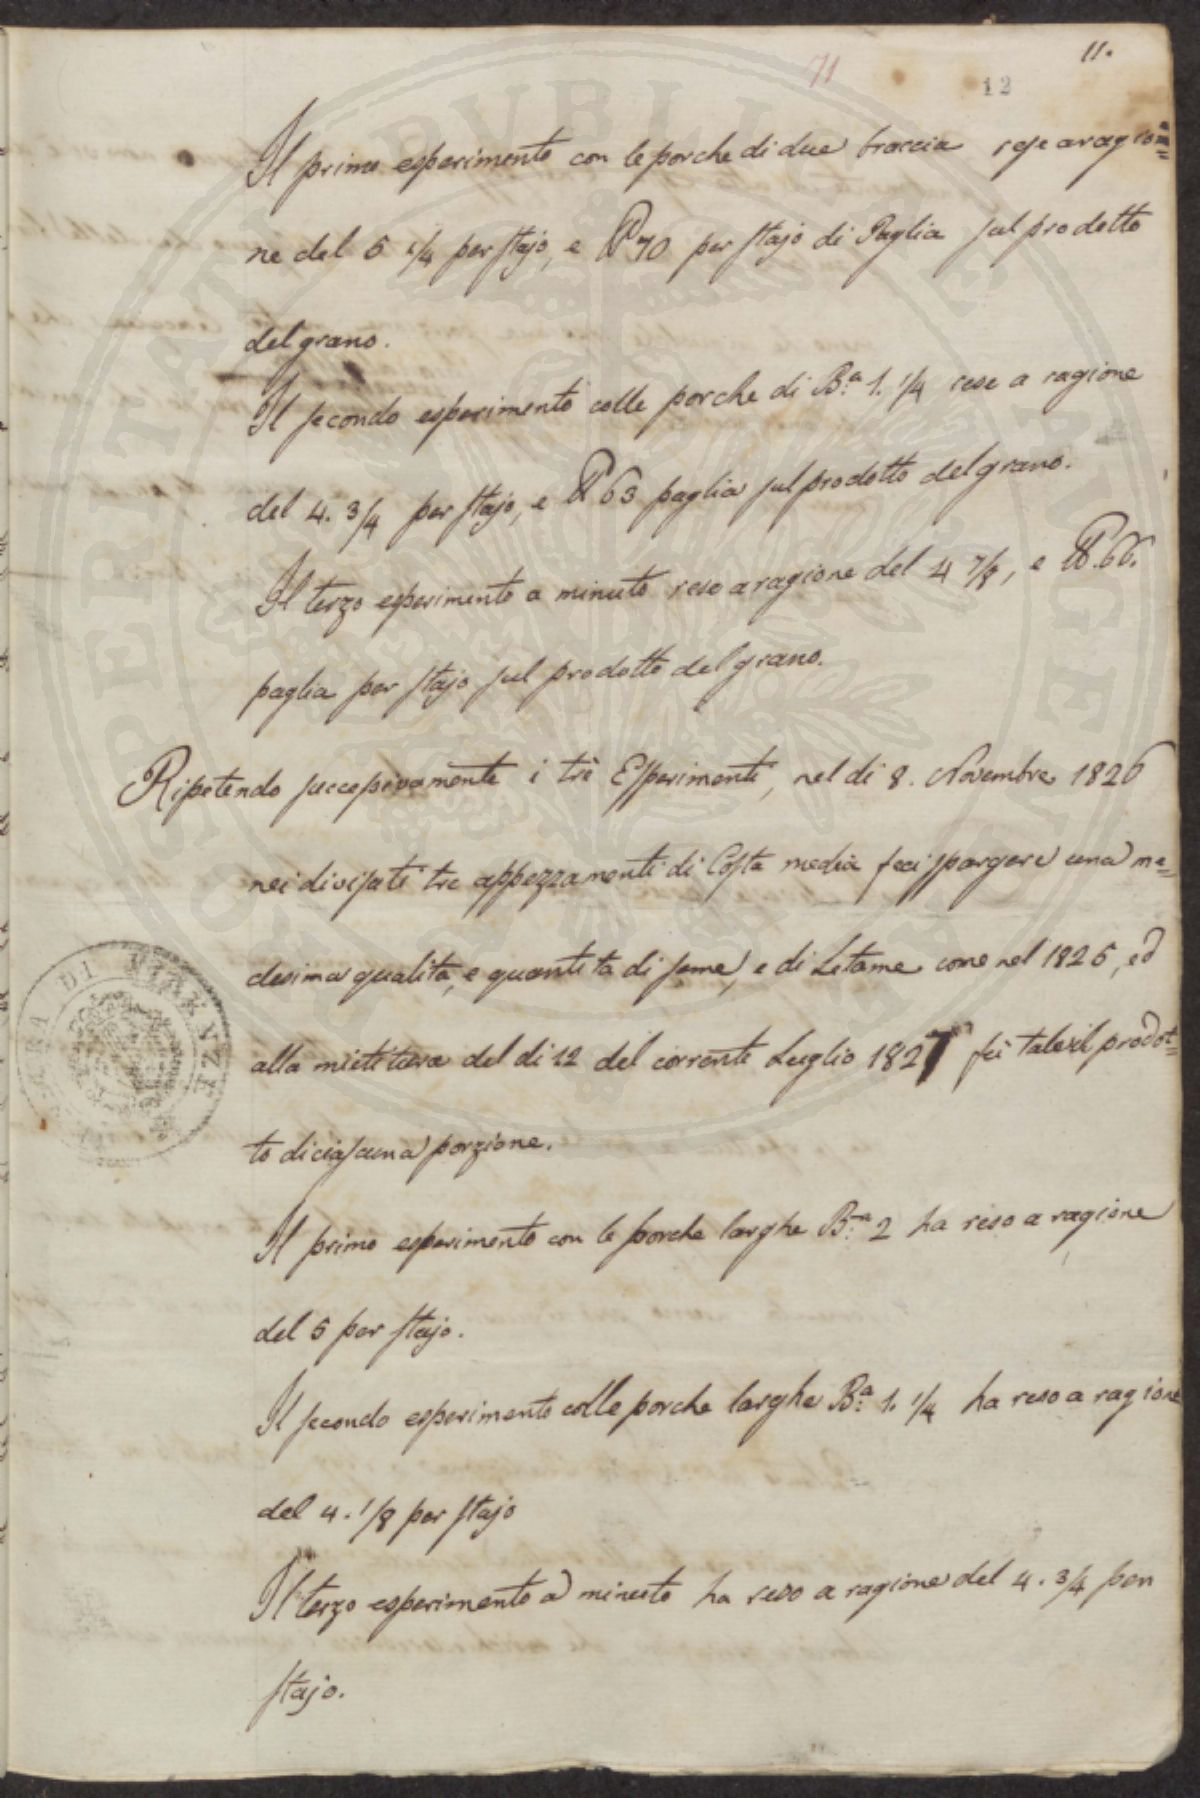 11.
71
12
Il primo esperimento con le porche di due braccia rese a ragio=
ne del 5 1/4 per stajo, e ℔ 70 per stajo di Paglia sul prodotto
del grano.
Il secondo esperimento colle porche di B.ª 1. 1/4 rese a ragione
del 4. 3/4 per stajo, e ℔ 63 paglia sul prodotto del grano.
Il terzo esperimento a minuto rese a ragione del 4 7/8, e ℔. 66.
paglia per stajo sul prodotto del grano.
Ripetendo successivamente i trè Esperimenti, nel di 8. Novembre 1826
nei divisati tre appezzamenti di Costa media feci spargere una me=
desima qualità, e quantità di seme, e di Letame come nel 1825, ed
alla mietitura del di 12 del corrente Luglio 1827 fù tale il prodot=
to di ciascuna porzione.
Il primo esperimento con le porche larghe B.ª 2 ha reso a ragione
del 5 per stajo.
Il secondo esperimento colle porche larghe B.ª 1. 1/4 ha reso a ragione
del 4. 1/8 per stajo
Il terzo esperimento a minuto ha reso a ragione del 4. 3/4 per
stajo.
PROSPERITATI PUBLICAE AUGENDAE